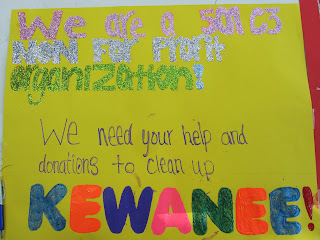 We are a 501 C3
NON FOR Profit
organization!
We need your help and
donations to clean up
KEWANEE!